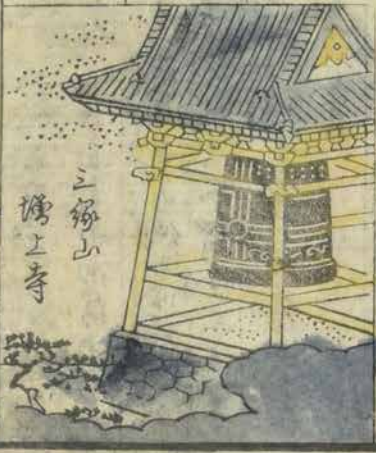 三縁山
増上寺